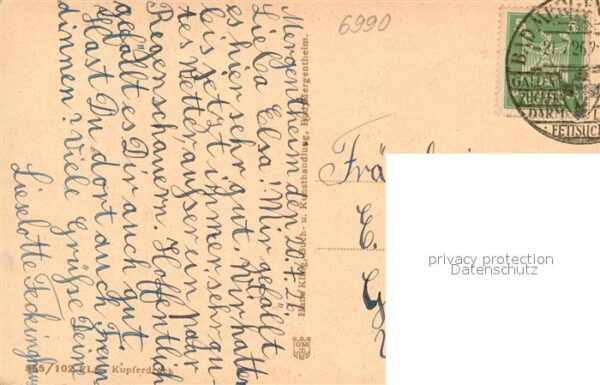 6990
Mergentheim den 20.7.26.
Liebe Elsa! Mir gefällt
es hier sehr gut. Wir hatten
bis jetzt immer sehr gu-
tes Wetter außer ein paar
Regenschauern. Hoffentlich
gefällt es Dir auch gut.
Hast Du dort auch Freun-
dinnen? Viele Grüße Deine
Lieselotte
Buch- u. Kunsthandlung, Bad Mergentheim.
Fräulein
E.
G
BAD MERGEN
26
GALLEN
ZUCKER
DARM
FETTSUCH
privacy protection
Datenschutz
855/102 Kupferdruck